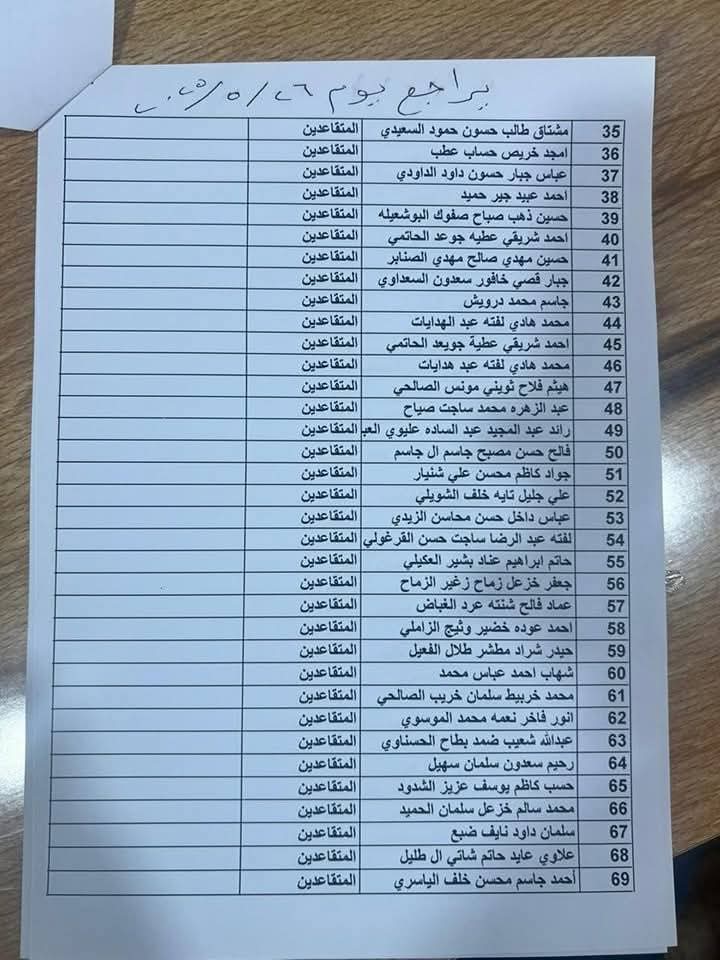 يراجع يوم ٢٦/٥/٢٠٢٥
35 مشتاق طالب حسون حمود السعيدي المتقاعدين
36 امجد خريص حساب عطب المتقاعدين
37 عباس جبار حسون داود الداودي المتقاعدين
38 احمد عبيد جبر حميد المتقاعدين
39 حسين ذهب صباح صفوك البوشعيله المتقاعدين
40 احمد شريقي عطيه جوعد الحاتمي المتقاعدين
41 حسين مهدي صالح مهدي الصنابر المتقاعدين
42 جبار قصي خافور سعدون السعداوي المتقاعدين
43 جاسم محمد درويش المتقاعدين
44 محمد هادي لفته عبد الهدايات المتقاعدين
45 احمد شريقي عطية جويعد الحاتمي المتقاعدين
46 محمد هادي لفته عبد هدايات المتقاعدين
47 هيثم فلاح ثويني مونس الصالحي المتقاعدين
48 عبد الزهره محمد ساجت صياح المتقاعدين
49 رائد عبد المجيد عبد الساده عليوي العب المتقاعدين
50 فالح حسن مصبح جاسم ال جاسم المتقاعدين
51 جواد كاظم محسن علي شنيار المتقاعدين
52 علي جليل تايه خلف الشويلي المتقاعدين
53 عباس داخل حسن محاسن الزيدي المتقاعدين
54 لفته عبد الرضا ساجت حسن القرغولي المتقاعدين
55 حاتم ابراهيم عناد بشير العكيلي المتقاعدين
56 جعفر خزعل زماح زغير الزماح المتقاعدين
57 عماد فالح شنته عرد الغباض المتقاعدين
58 احمد عوده خضير وثيج الزاملي المتقاعدين
59 حيدر شراد مطشر طلال الفعيل المتقاعدين
60 شهاب احمد عباس محمد المتقاعدين
61 محمد خربيط سلمان خريب الصالحي المتقاعدين
62 انور فاخر نعمه محمد الموسوي المتقاعدين
63 عبدالله شعيب ضمد بطاح الحسناوي المتقاعدين
64 رحيم سعدون سلمان سهيل المتقاعدين
65 حسب كاظم يوسف عزيز الشدود المتقاعدين
66 محمد سالم خزعل سلمان الحميد المتقاعدين
67 سلمان داود نايف ضبع المتقاعدين
68 علاوي عايد حاتم شاتي ال طليل المتقاعدين
69 أحمد جاسم محسن خلف الياسري المتقاعدين